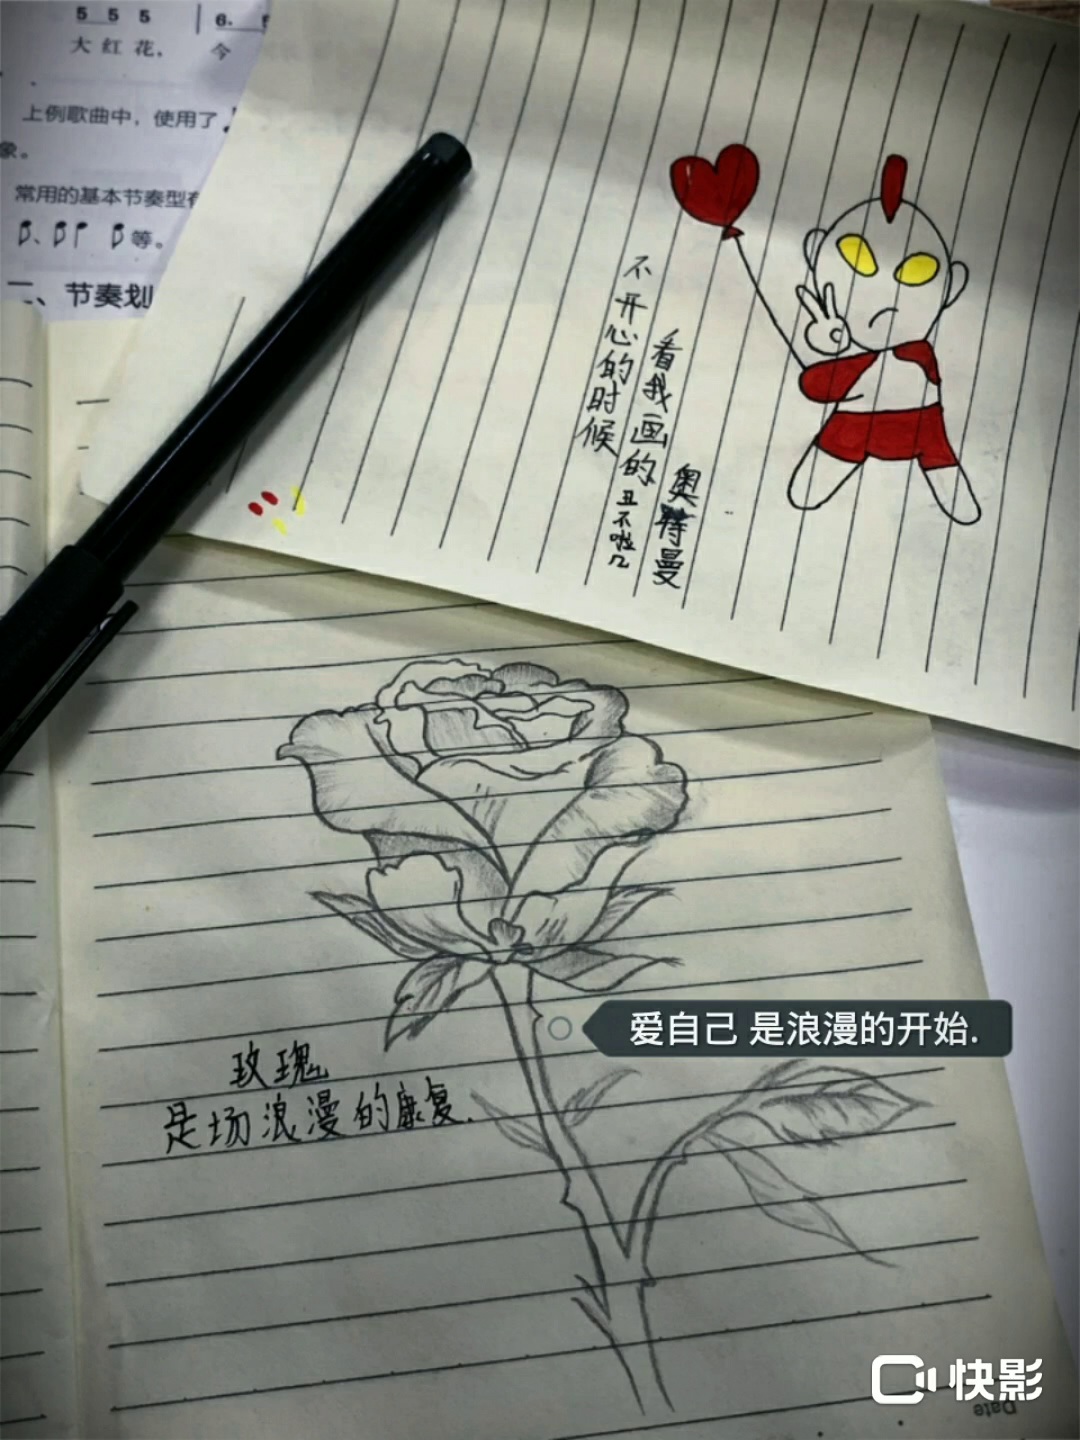 5 5 5 | 6.
大 红 花， 今
上例歌曲中，使用了
象。
常用的基本节奏型有
等。
二、节奏划
不开心的时候
看我画的
奥特曼
丑不啦几
玫瑰
是场浪漫的康复.
爱自己 是浪漫的开始.
快影
Date